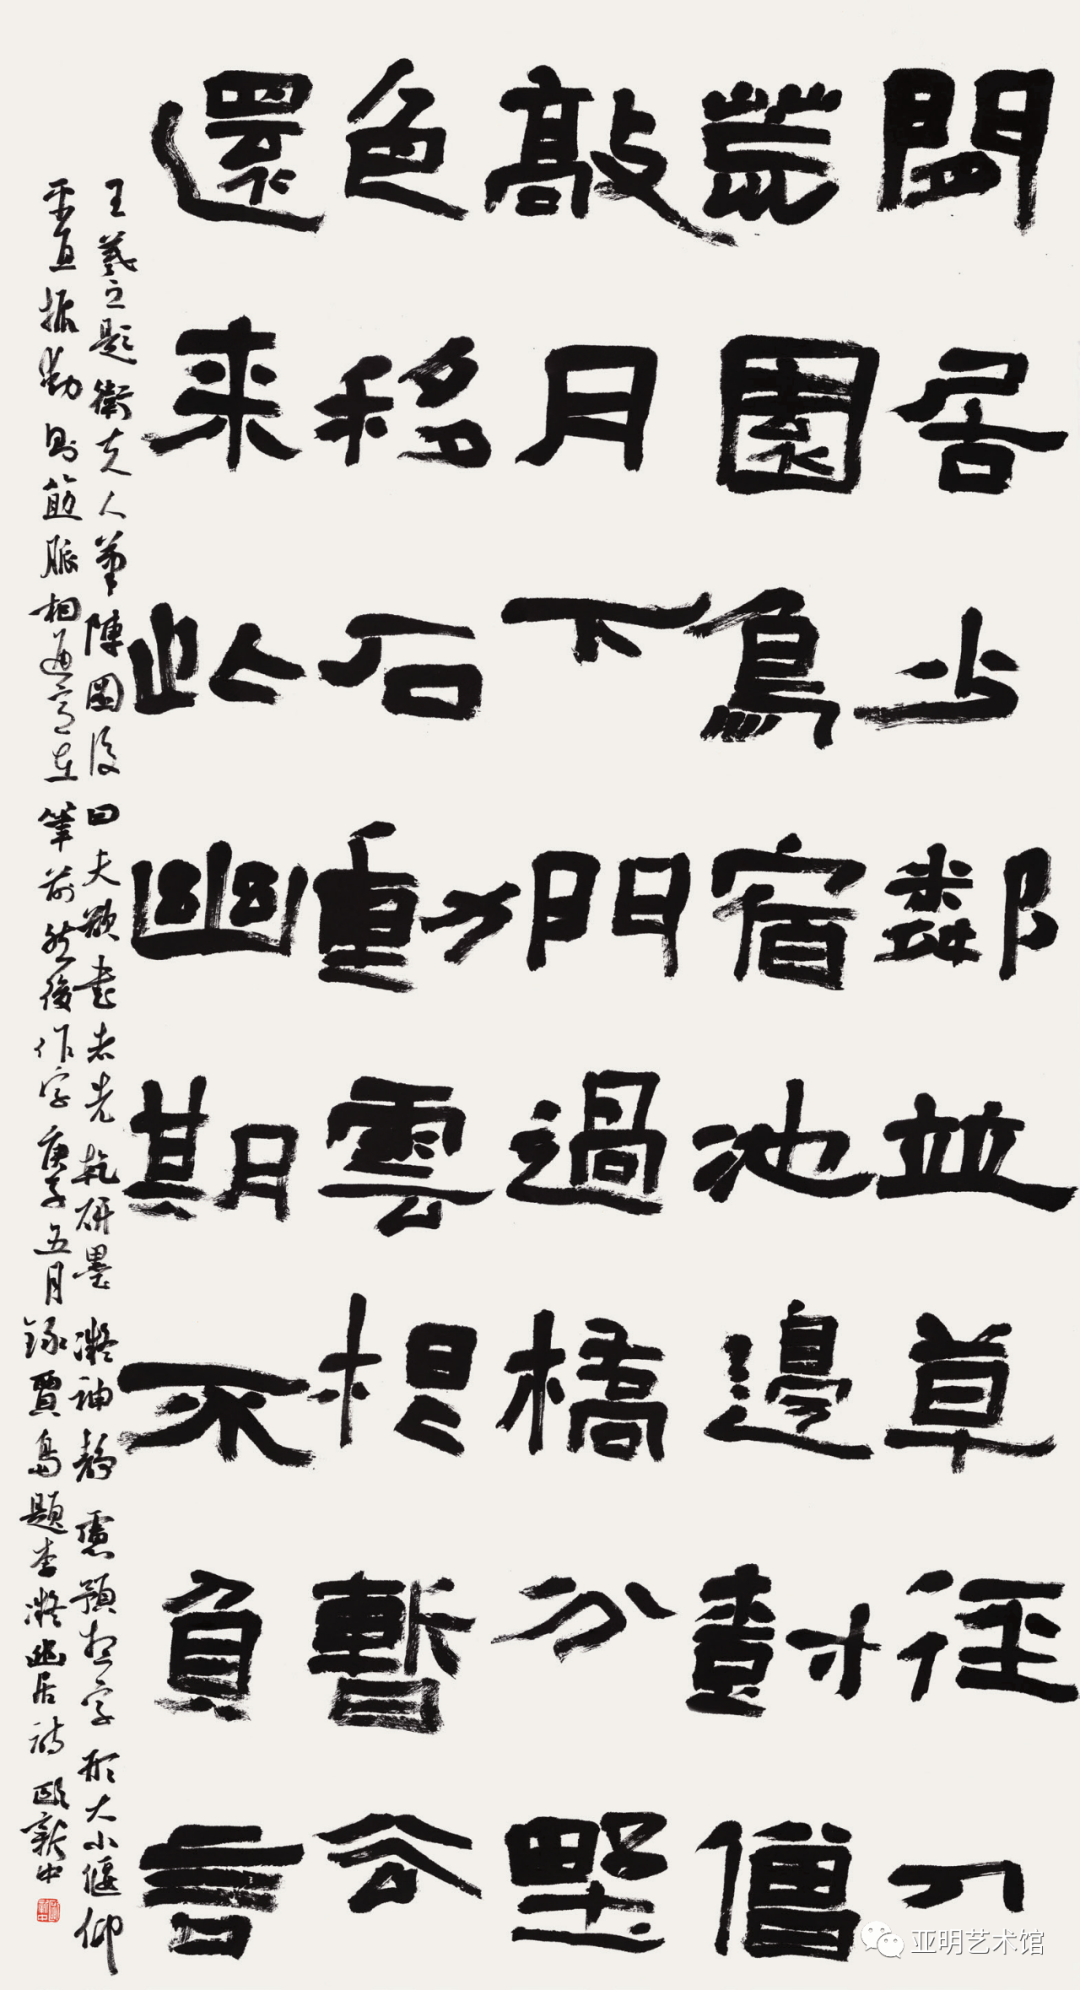 閒居少鄰並草徑入
荒園鳥宿池邊樹僧
敲月下門過橋分野
色移石動雲根暫去
還來此幽期不負言
王羲之題衛夫人筆陣圖後曰夫欲書者先乾研墨凝神靜慮預想字形大小偃仰
平直振動則筋脈相連意在筆前然後作字庚子五月錄賈島題李凝幽居詩歐新中
亚明艺术馆